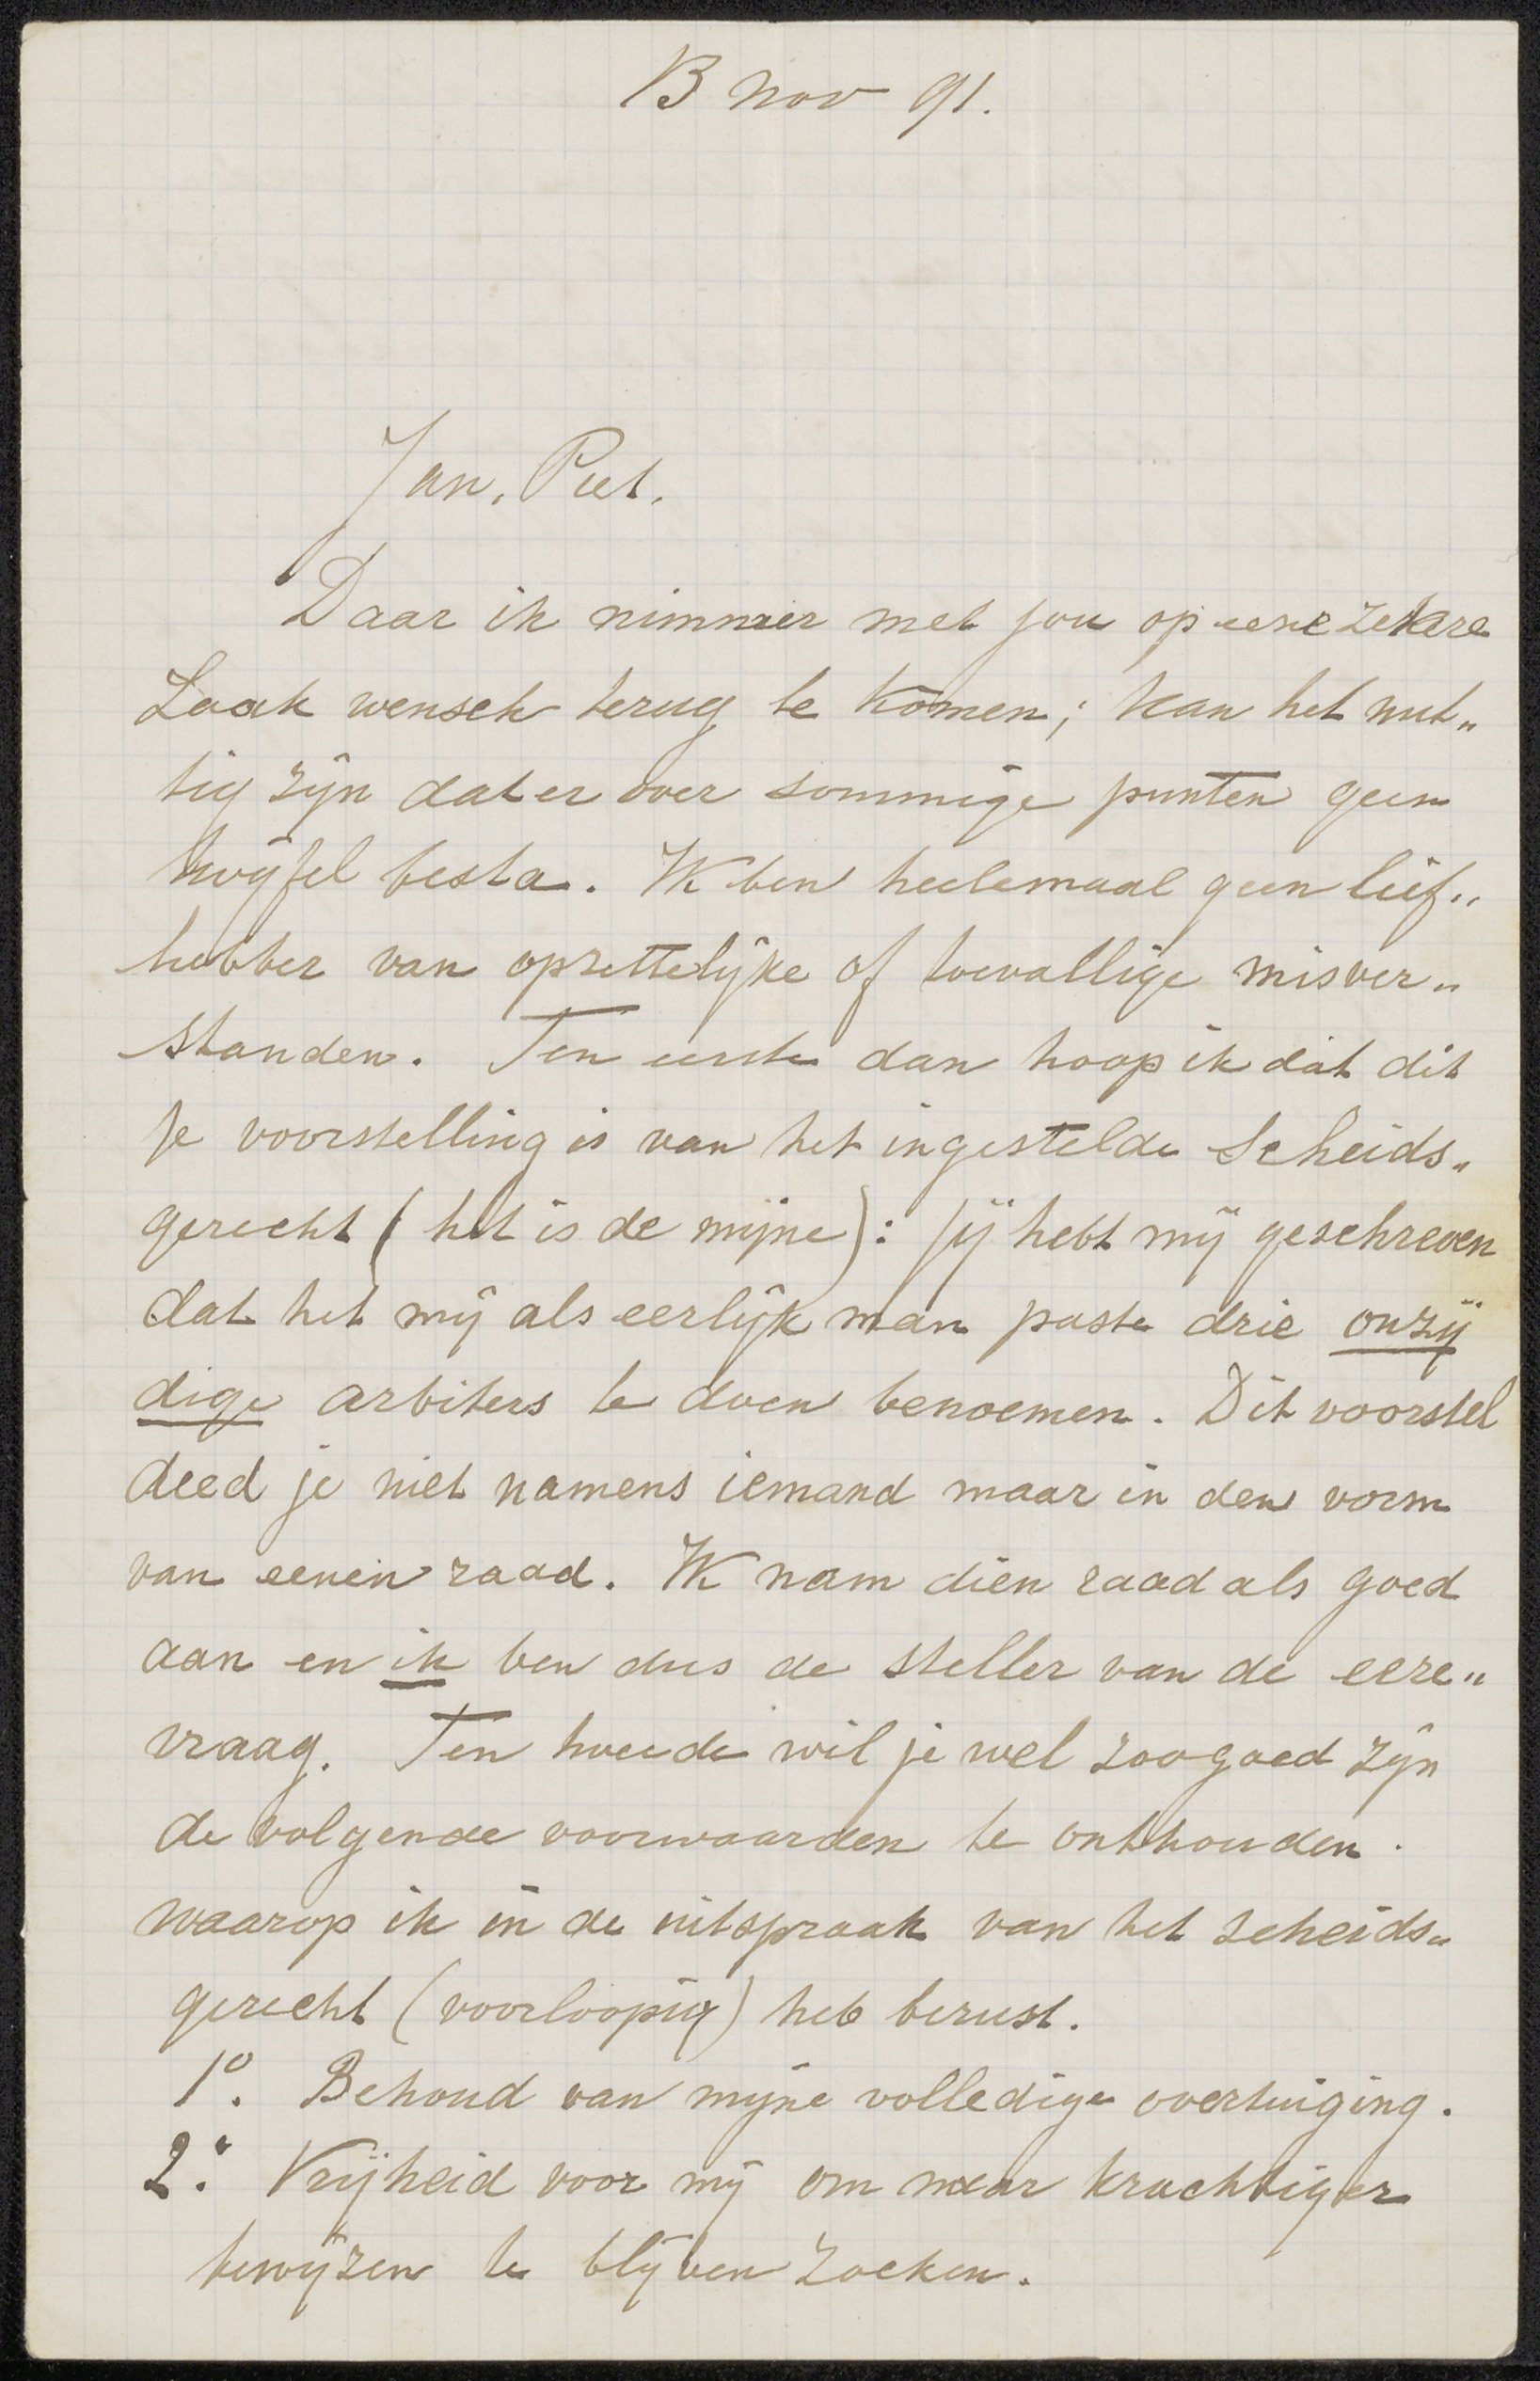 13 nov 91.
Jan, Piet.
Daar ik nimmer met jou op eene zekere
Zaak wensch terug te komen; kan het nut„
tig zijn dat er over sommige punten geen
twijfel besta. Ik ben heelemaal geen lief„
hebber van opzettelijke of toevallige misver„
standen. Ten eerste dan hoop ik dat dit
je voorstelling is van het ingestelde Scheids„
gerecht (het is de mijne): jij hebt mij geschreven
dat het mij als eerlijk man paste drie onzij
dige arbiters te doen benoemen. Dit voorstel
deed je niet namens iemand maar in den vorm
van eenen raad. Ik nam dien raad als goed
aan en ik ben dus de steller van de eere„
vraag. Ten tweede wil je wel zoogoed zijn
de volgende voorwaarden te onthouden.
waarop ik in de uitspraak van het scheids„
gerecht (voorloopig) heb berust.
1°. Behoud van mijne volledige overtuiging.
2°. Vrijheid voor mij om naar krachtiger
bewijzen te blijven zoeken.